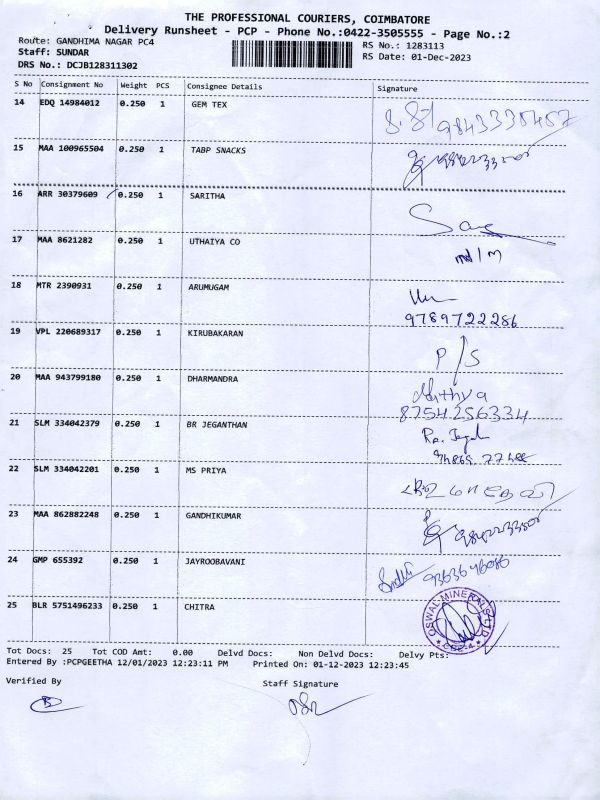 THE PROFESSIONAL COURIERS, COIMBATORE
Delivery Runsheet - PCP - Phone No.:0422-3505555 - Page No.:2
Route: GANDHIMA NAGAR PC4 RS No.: 1283113
Staff: SUNDAR RS Date: 01-Dec-2023
DRS No.: DCJB128311302
S No Consignment No Weight PCS Consignee Details Signature
14 EDQ 14984012 0.250 1 GEM TEX
15 MAA 100965504 0.250 1 TABP SNACKS
16 ARR 30379609 0.250 1 SARITHA
17 MAA 8621282 0.250 1 UTHAIYA CO
18 MTR 2390931 0.250 1 ARUMUGAM
9789722286
19 VPL 220689317 0.250 1 KIRUBAKARAN
P/S
20 MAA 943799180 0.250 1 DHARMANDRA
8754256334
21 SLM 334042379 0.250 1 BR JEGANTHAN
22 SLM 334042201 0.250 1 MS PRIYA
23 MAA 862882248 0.250 1 GANDHIKUMAR
24 GMP 655392 0.250 1 JAYROOBAVANI
25 BLR 5751496233 0.250 1 CHITRA
OSWAL MINERALS LTD
Tot Docs: 25 Tot COD Amt: 0.00 Delvd Docs: Non Delvd Docs: Delvy Pts:
Entered By :PCPGEETHA 12/01/2023 12:23:11 PM Printed On: 01-12-2023 12:23:45
Verified By Staff Signature